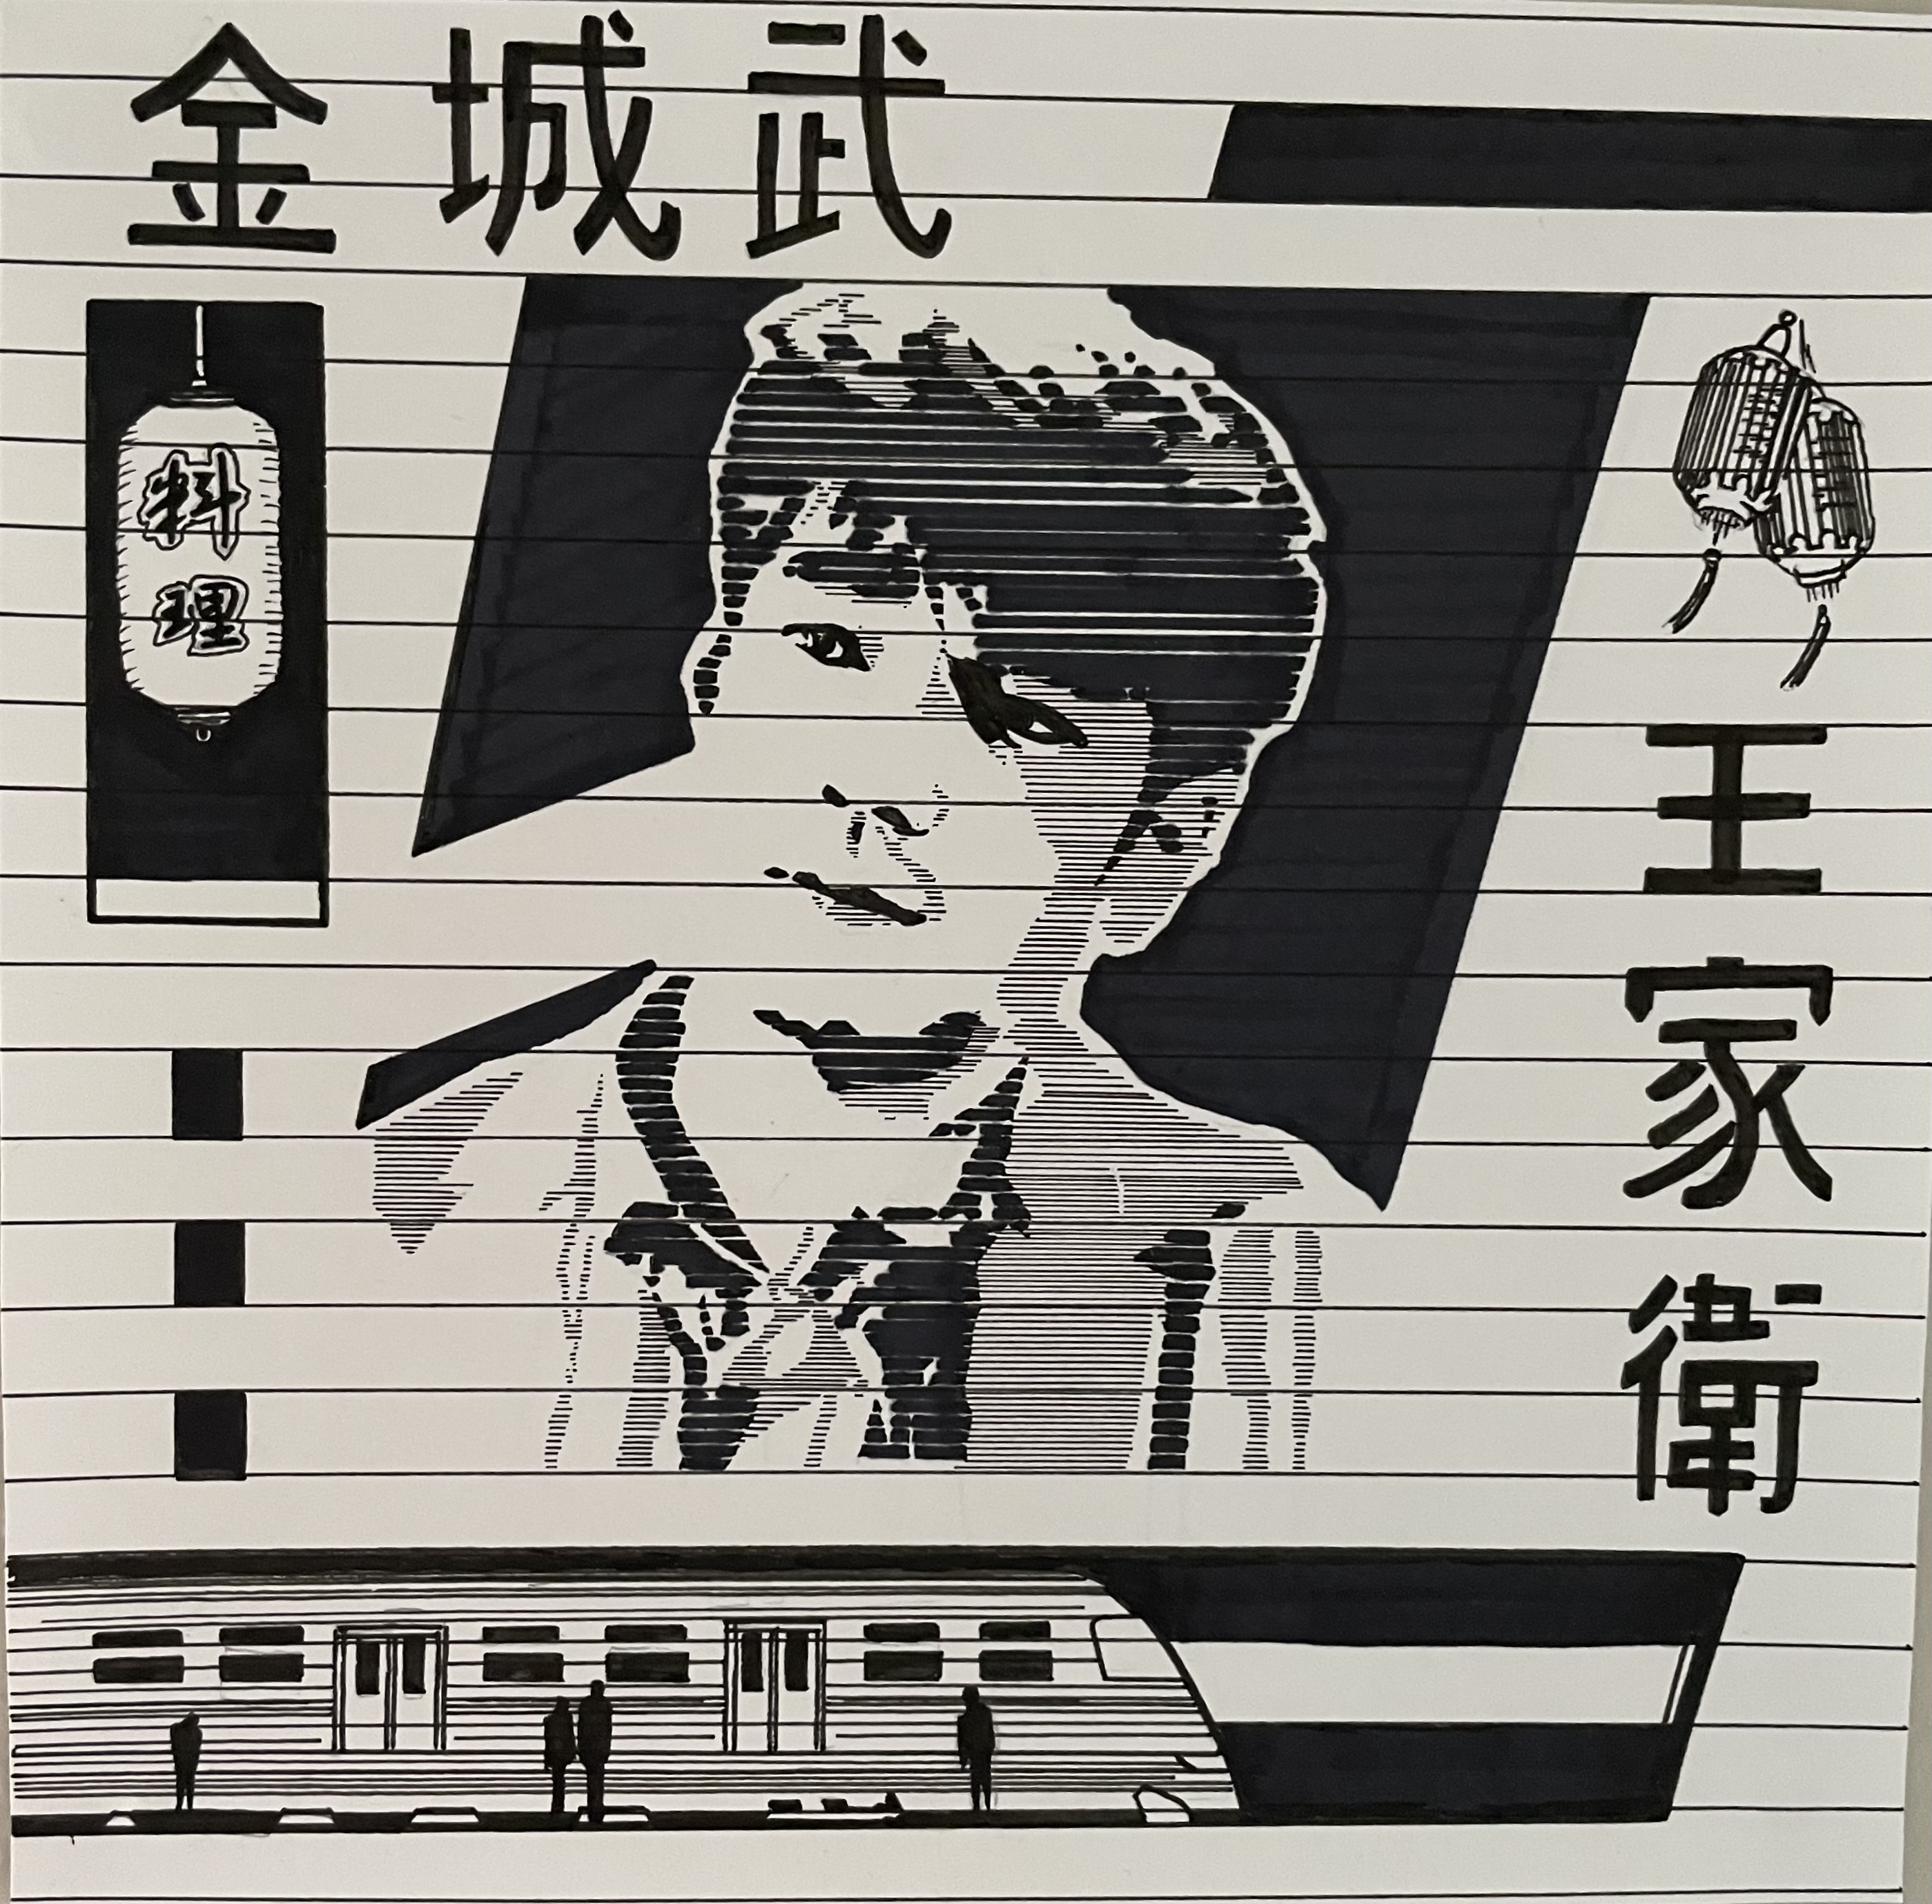 金城武
料理
王家衛